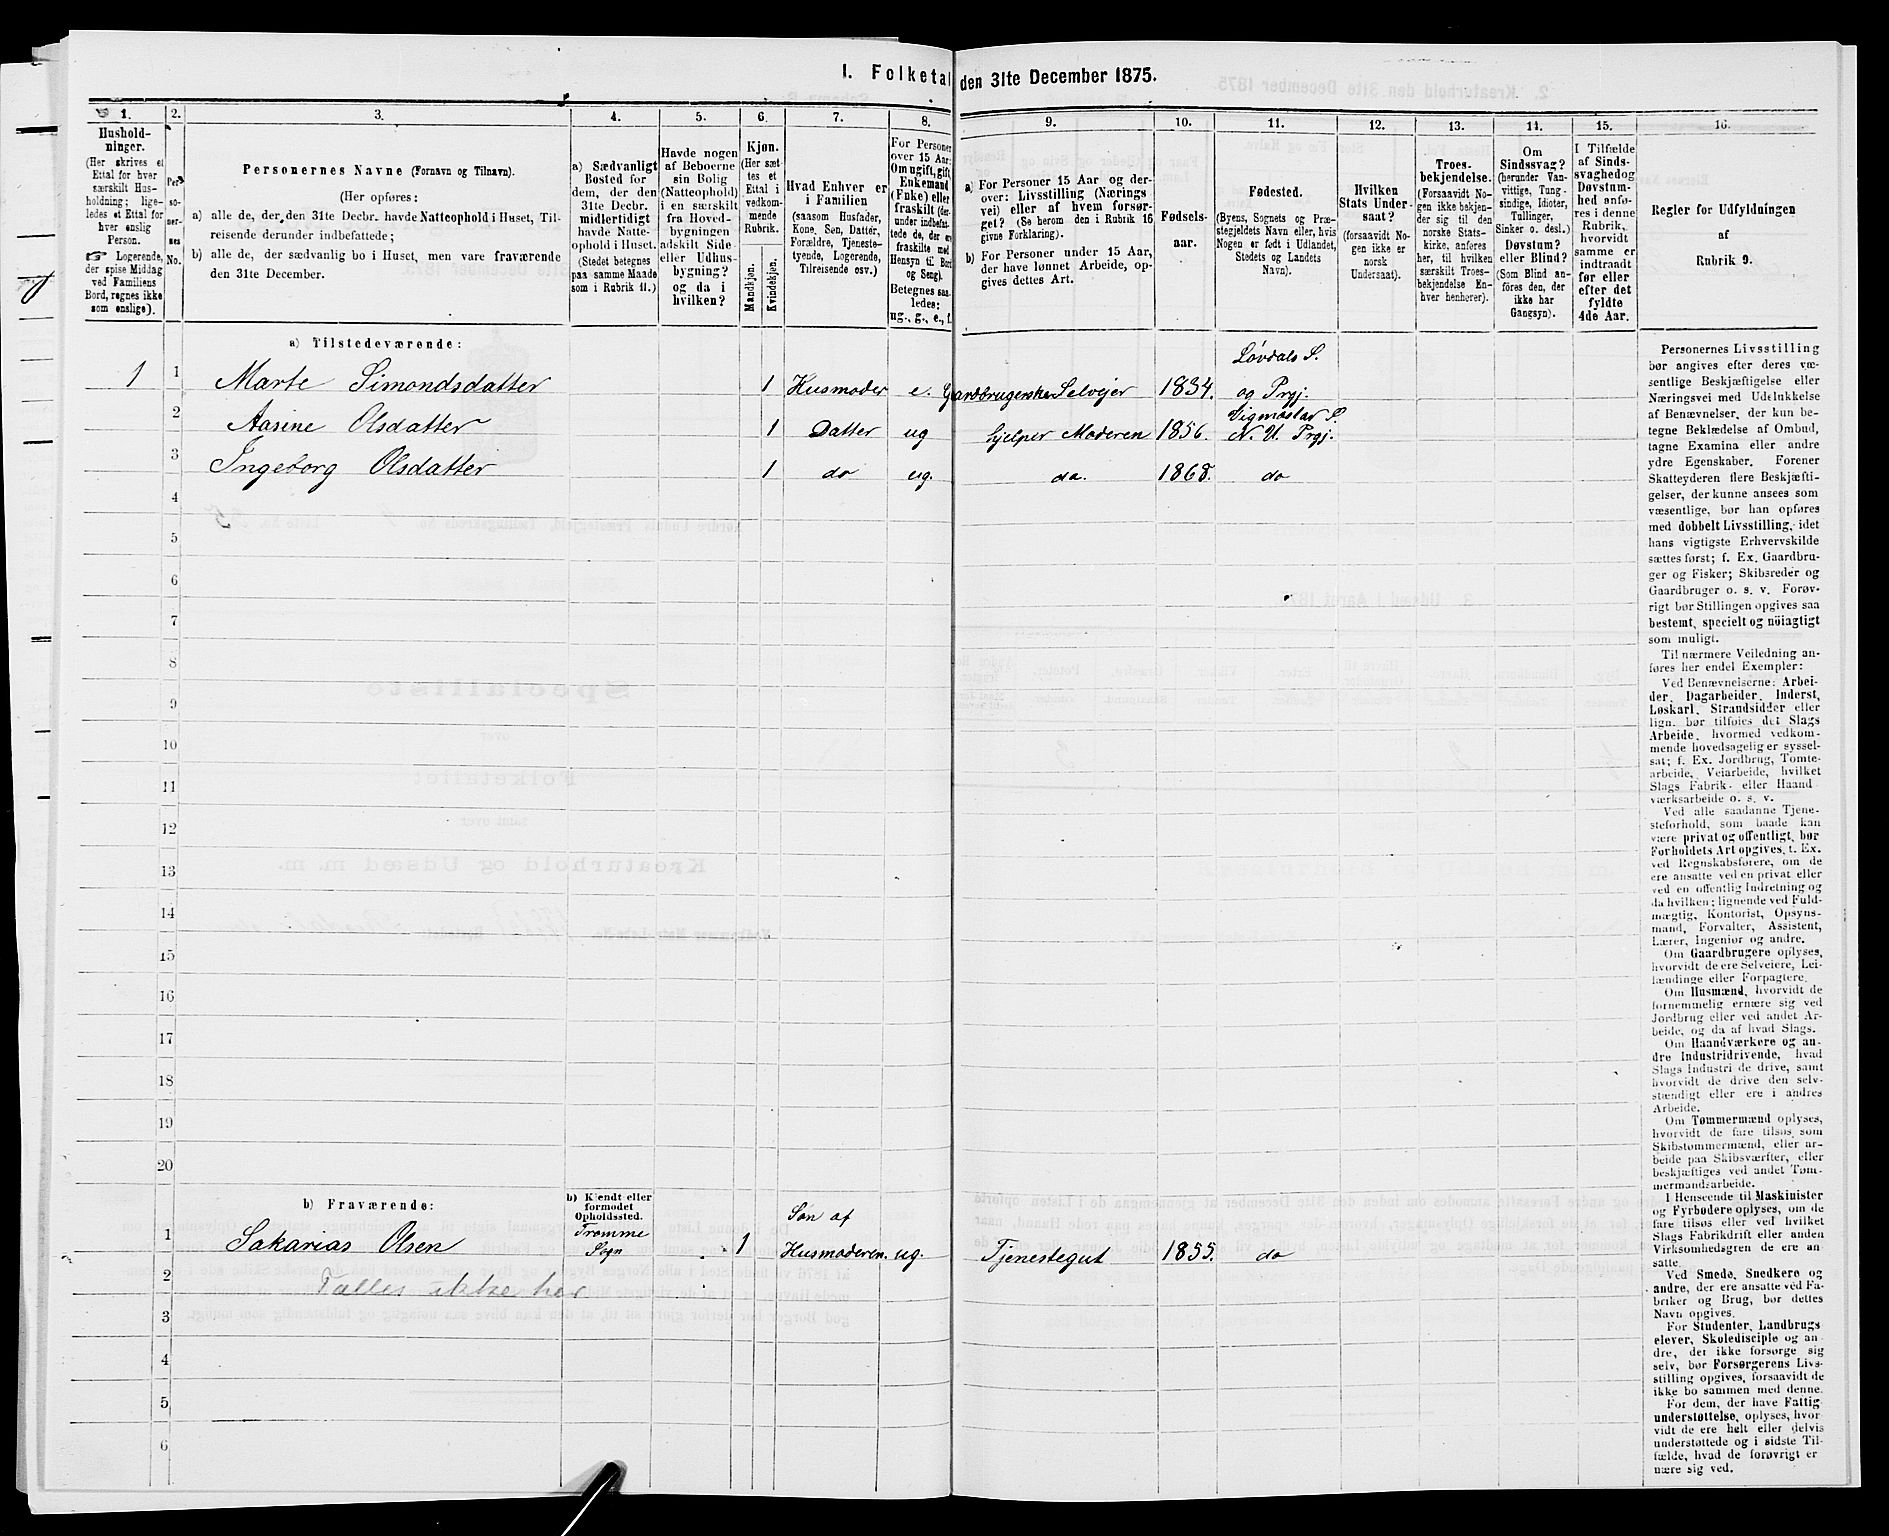 I. Folketal den 31te December 1875.
1.
Hushold-
ninger.
(Her skrives et
Ettal for hver
særskilt Hus-
holdning; lige-
ledes et Ettal for
hver enslig
Person.
Logerende,
der spise Middag
ved Familiens
Bord, regnes ikke
som enslige).
2.
Per
so-
ner-
nes
No.
3.
Personernes Navne (Fornavn og Tilnavn).
(Her opføres:
a) alle de, der den 31te Decbr. havde Natteophold i Huset, Til-
reisende derunder indbefattede;
b) alle de, der sædvanlig bo i Huset, men vare fraværende
den 31te December.
4.
a) Sædvanligt
Bosted for
dem, der den
31te Decbr.
midlertidigt
havde Natte-
ophold i Huset.
(Stedet betegnes
paa samme Maade
som i Rubrik 11.)
5.
Havde nogen
af Beboerne
sin Bolig
(Natteophold)
i en særskilt
fra Hoved-
bygningen
adskilt Side-
eller Udhus-
bygning?
og da i
hvilken?
6.
Kjøn.
(Her sæt-
tes et
Ettal i
vedkom-
mende
Rubrik.
Mandkjøn.
Kvindekjøn.
7.
Hvad Enhver er
i Familien
(saasom Husfader,
Kone, Søn, Datter,
Forældre, Tjeneste-
tyende, Logerende,
Tilreisende osv.)
8.
For Personer
over 15 Aar:
Om ugift, gift,
Enkemand
(Enke) eller
fraskilt (der-
under indbefat-
tede de, der er
fraskilte med
Hensyn til Bord
og Seng).
Betegnes saa-
ledes:
ug., g., e., f.
9.
a) For Personer 15 Aar og der-
over: Livsstilling (Nærings-
vei) eller af hvem forsør-
get? (Se herom den i Rubrik 16
givne Forklaring).
b) For Personer under 15 Aar,
der have lønnet Arbeide, op-
gives dettes Art.
10.
Fødsels-
aar.
11.
Fødested.
(Byens, Sognets og Præ-
stegjeldets Navn eller, hvis
Nogen er født i Udlandet,
Stedets og Landets
Navn).
12.
Hvilken
Stats Under-
saat?
(forsaavidt No-
gen ikke er
norsk
Undersaat).
13.
Troes-
bekjendelse.
(Forsaavidt No-
gen ikke bekjen-
der sig til den
norske Stats-
kirke, anføres
her, til hvilken
særskilt Troes-
bekjendelse En-
hver henhører).
14.
Om
Sindssvag?
(herunder Van-
vittige, Tung-
sindige, Idioter,
Tullinger,
Sinker o. desl.)
Døvstum?
eller Blind?
(Som Blind an-
føres den, der
ikke har
Gangsyn).
15.
I Tilfælde
af Sinds-
svaghed og
Døvstum-
hed anfø-
res i denne
Rubrik,
hvorvidt
samme er
indtraadt
før eller
efter det
fyldte
4de Aar.
16.
Regler for Udfyldningen
af
Rubrik 9.
a) Tilstedeværende:
Løvdals S.
1 1 Marte Simondsdatter 1 Husmoder e. Gaardbrugerske Selvejer 1834. og Prgj.
Vigmostar S.
2 Aasine Olsdatter 1 Datter ug hjelper Moderen 1856. N. U. Prgj.
3 Ingeborg Olsdatter 1 do ug. do. 1868. do
4
5
6
7
8
9
10
11
12
13
14
15
16
17
18
19
20
b) Fraværende:
b) Kjendt eller
formodet
Opholdssted.
Tromme Søn af
1 Sakarias Olsen Sogn 1 Husmoderen. ug. Tjenestegut 1855. do
2 Tælles ikke her
3
4
5
6
Personernes Livsstilling
bør angives efter deres væ-
sentlige Beskjæftigelse eller
Næringsvei med Udelukkelse
af Benævnelser, der kun be-
tegne Beklædelse af Ombud,
tagne Examina eller andre
ydre Egenskaber. Forener
Skatteyderen flere Beskjæfti-
gelser, der kunne ansees som
væsentlige, bør han opføres
med dobbelt Livsstilling, idet
hans vigtigste Erhvervskilde
sættes først; f. Ex. Gaardbru-
ger og Fisker; Skibsreder og
Gaardbruger o. s. v. Forøv-
rigt bør Stillingen opgives saa
bestemt, specielt og nöiagtigt
som muligt.
Til nærmere Veiledning an-
føres her endel Exempler:
Ved Benævnelserne: Arbei-
der, Dagarbeider, Inderst,
Løskarl, Strandsidder eller
lign. bør tilføies det Slags
Arbeide, hvormed vedkom-
mende hovedsagelig er syssel-
sat; f. Ex. Jordbrug, Tomte-
arbeide, Veiarbeide, hvilket
Slags Fabrik- eller Haand
værksarbeide o. s. v.
Ved alle saadanne Tjene-
steforhold, som baade kan
være privat og offentligt, bør
Forholdets Art opgives, f. Ex.
ved Regnskabsførere, om de
ere ansatte ved en privat eller
ved en offentlig Indretning og
da hvilken; lignende ved Fuld-
mægtig, Kontorist, Opsyns-
mand, Forvalter, Assistent,
Lærer, Ingeniør og andre.
Om Gaardbrugere oplyses,
hvorvidt de ere Selveiere, Lei-
lændinge eller Forpagtere.
Om Husmænd, hvorvidt de
fornemmelig ernære sig ved
Jordbrug eller ved andet Ar-
beide, og da af hvad Slags.
Om Haandværkere og an-
dre Industridrivende, hvad
Slags Industri de drive, samt
hvorvidt de drive den selv-
stændigt eller ere i andres
Arbeide.
Om Tømmermænd oplyses,
hvorvidt de fare tilsøs som
Skibstømmermænd, eller ar-
beide paa Skibsværfter, eller
beskjæftiges ved andet Tøm-
mermandsarbeide.
I Henseende til Maskinister
og Fyrbødere oplyses, om de
fare tilsøs eller ved hvilket
Slags Fabrikdrift eller anden
Virksomhedsgren de ere an-
satte.
Ved Smede, Snedkere og
andre, der ere ansatte ved Fa-
briker og Brug, bør dettes
Navn opgives.
For Studenter, Landbrugs
elever, Skoledisciple og an-
dre, der ikke forsørge sig
selv, bør Forsørgerens Livs-
stilling opgives, forsaavidt de
ikke bo sammen med denne.
For dem, der have Fattig
understøttelse, oplyses, hvor
vidt de ere helt eller delvis
understøttede og i sidste Til-
fælde, hvad de forøvrigt er
nære sig ved.